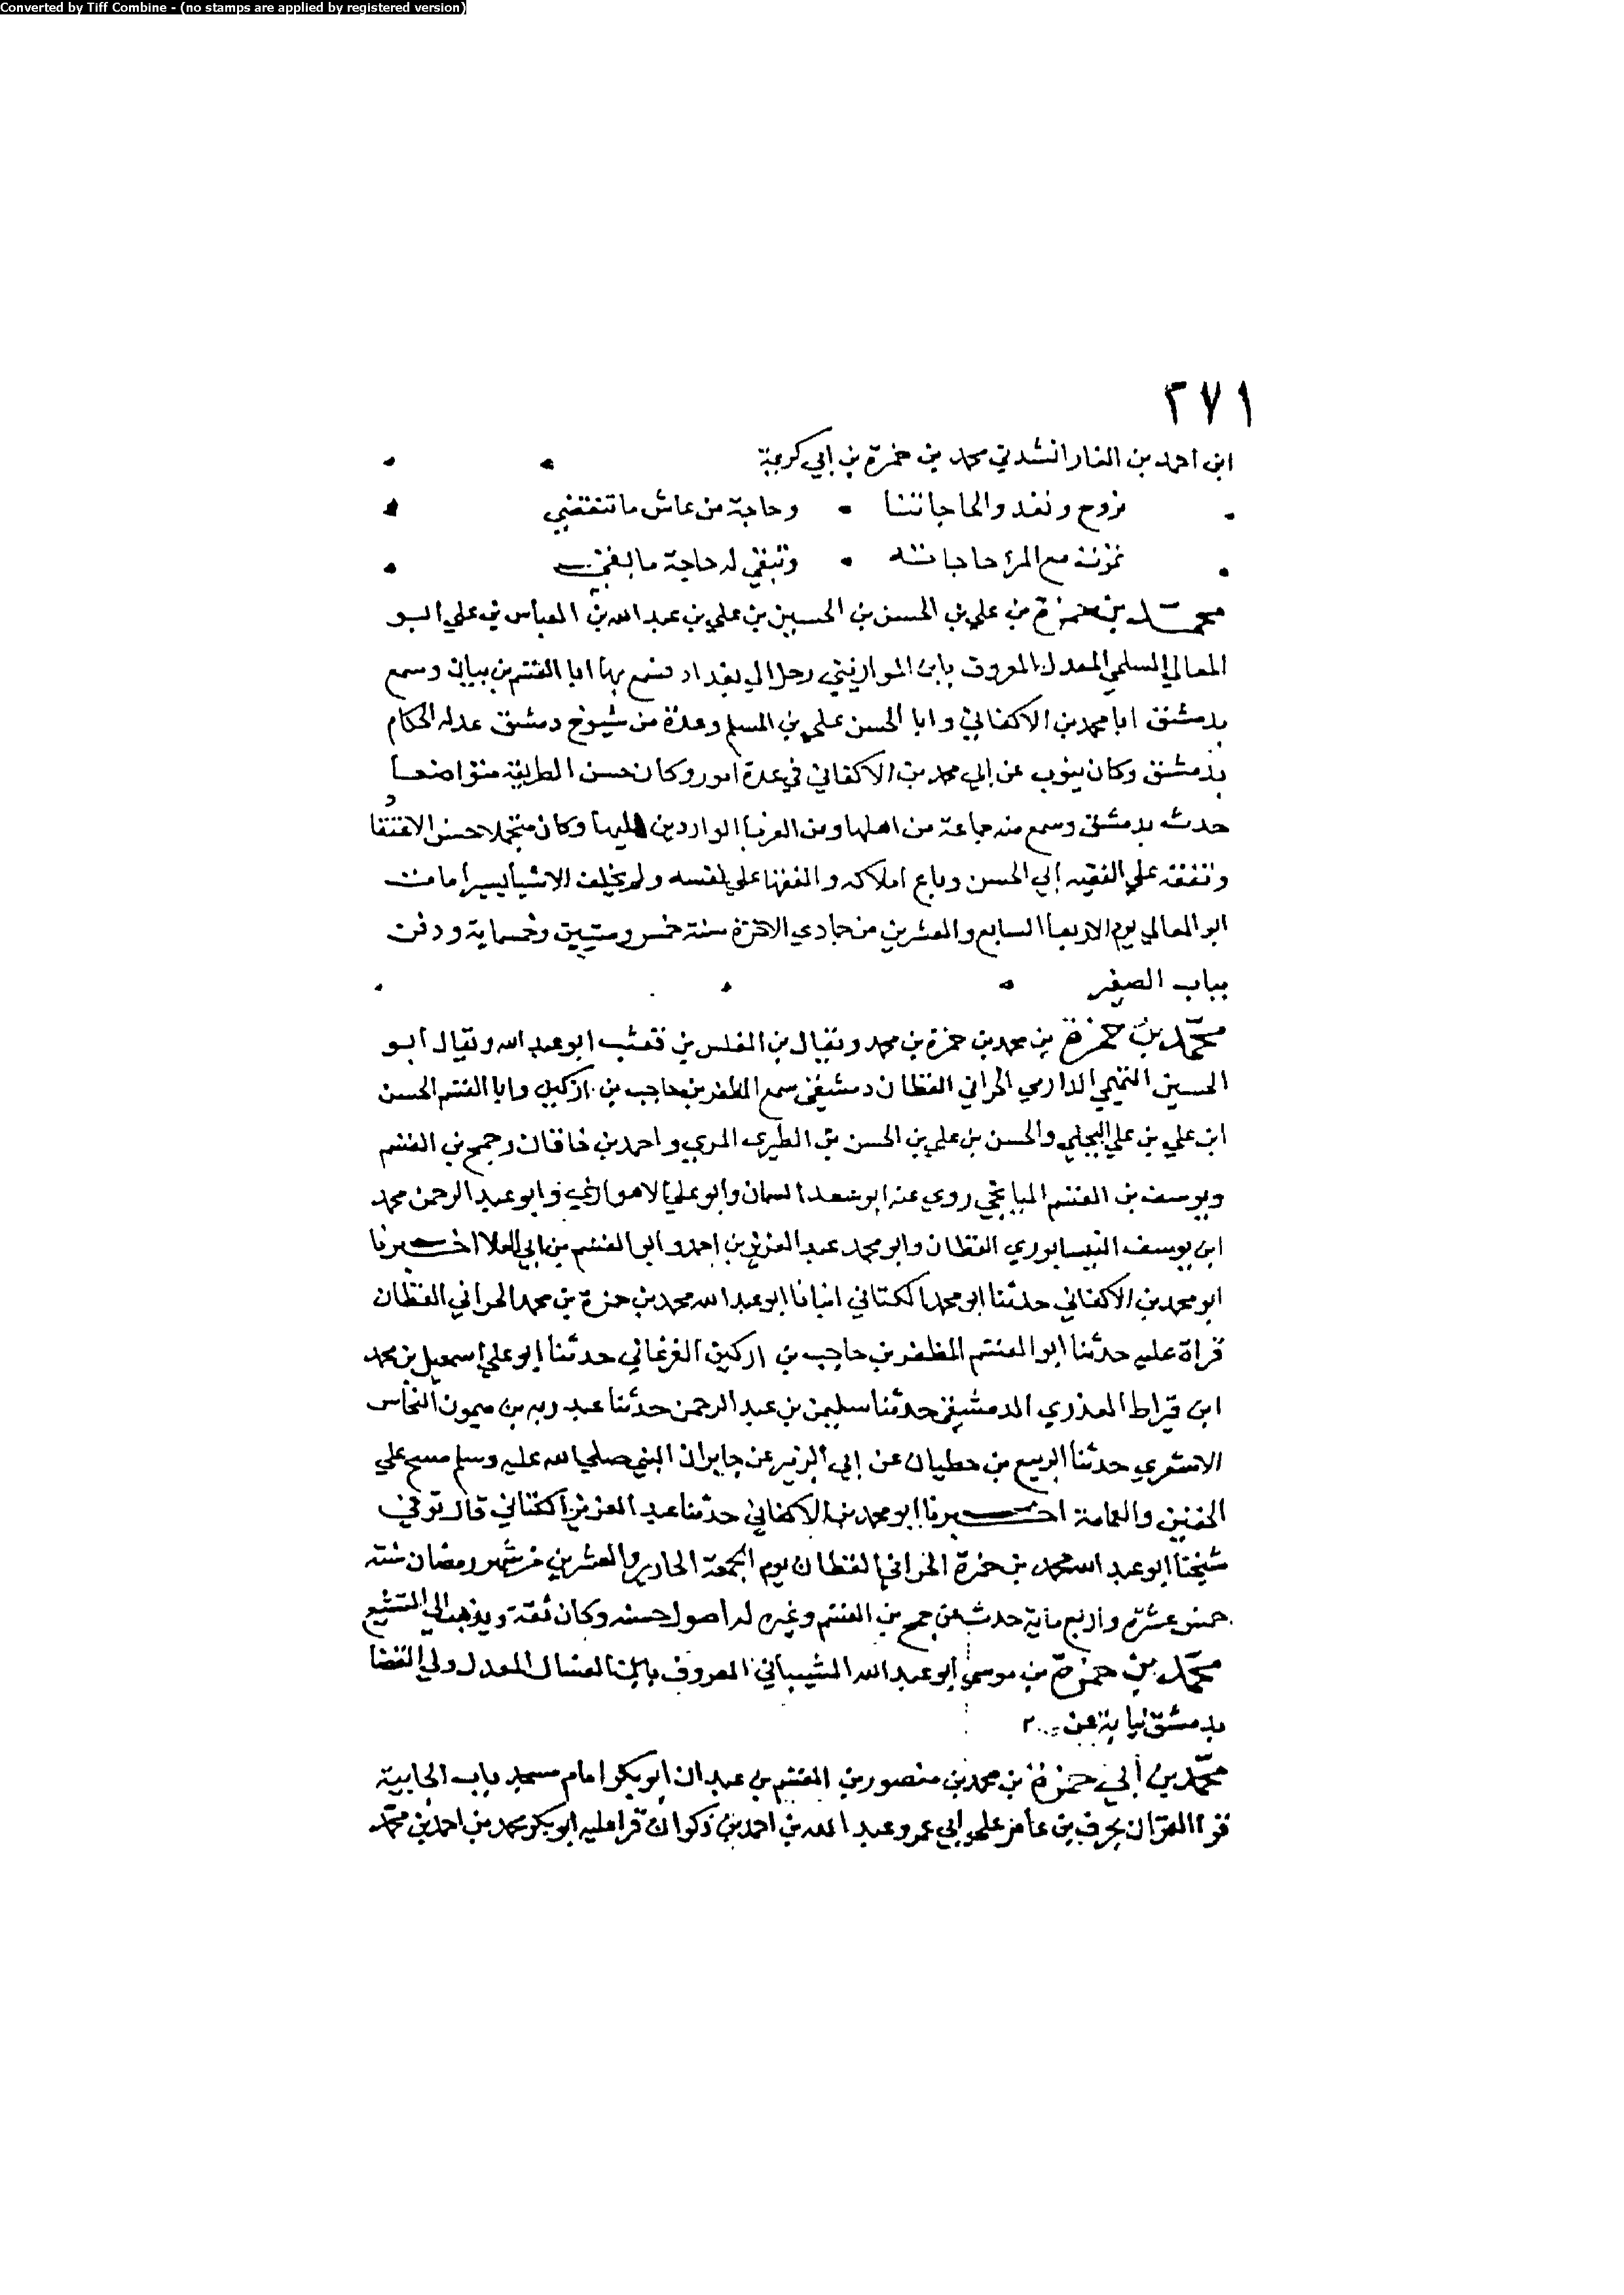 Converted by Tiff Combine - (no stamps are applied by registered version)
٢٧١
ابن احمد بن الغار انشدني محمد بن حمزة بن ابي كريمة
نروح ونغدوا لحاجاتنا • وحاجة من عاش ما تنقضي
تموت مع المرء حاجاته • وتبقى له حاجة ما بقي
محمد بن حمزة بن علي بن الحسن بن الحسين بن علي بن عبد الله بن العباس بن علي ابو
المعالي السلمي المعدل المعروف بابن الموازيني رحل الى بغداد فسمع بها ابا القسم بن بيان وسمع
بدمشق ابا محمد بن الاكفاني وابا الحسن علي بن المسلم وعدة من شيوخ دمشق عدله الحكام
بدمشق وكان ينوب عن ابي محمد بن الاكفاني في عدة امور وكان حسن الطريقة متواضعا
حدث بدمشق وسمع منه جماعة من اهلها ومن الغربا الواردين اليها وكان متجملا حسن الاعتقا
د
وتفقه على الفقيه ابي الحسن وباع املاكه وانفقها على نفسه ولم يخلف الا شيأ يسيرا مات
ابو المعالي يوم الاربعا السابع والعشرين من جمادي الاخرة سنة خمس وستين وخمسماية ودفن
بباب الصغير
محمد بن حمزة بن محمد بن حمزة بن محمد ويقال بن المغلس بن قعنب ابو عبد الله ويقال ابو
الحسين التميمي الدارمي الحراني القطان دمشقي سمع المظفر بن حاجب بن اركين وابا القسم الحسن
ابن علي بن علي البجلي والحسن بن علي بن الحسن بن الطيرى المري واحمد بن خاقان وجمح بن القسم
ويوسف بن القسم الميانجي روى عنه ابو سعد السمان وابو علي الاهوازي وابو عبد الرحمن محمد
ابن يوسف النيسابوري القطان وابو محمد عبد العزيز بن احمد وابو القسم بن ابي العلا اخبرنا
ابو محمد بن الاكفاني حدثنا ابو محمد الكتاني انبانا ابو عبد الله محمد بن حمزة بن محمد الحراني القطان
قراة عليه حدثنا ابو القسم المظفر بن حاجب بن اركين الفرغاني حدثنا ابو علي اسمعيل بن محمد
ابن قيراط العذري الدمشقي حدثنا سليمن بن عبد الرحمن حدثنا عبد ربه بن ميمون النحاس
الاشعري حدثنا الربيع بن حطيان عن ابي الزبير عن جابر ان النبي صلى الله عليه وسلم مسح على
الخفين والعمامة اخبرنا ابو محمد بن الاكفاني حدثنا عبد العزيز الكتاني قال توفي
شيخنا ابو عبد الله محمد بن حمزة الحراني القطان يوم الجمعة الحادي والعشرين من شهر رمضان سنة
خمس عشرة واربع ماية حدث عن جمح بن القسم وغيره له اصول حسنه وكان ثقة ويذهب الى التشيع
محمد بن حمزة بن موسى ابو عبد الله الشيباني المعروف بابن العسال المعدل ولي القضا
بدمشق نيابة عن
محمد بن أبي حمزة بن محمد بن منصور بن القسم بن عبدان ابو بكر امام مسجد باب الجابية
قرا القران بحرف بن عامر على ابي عمرو عبد الله بن احمد بن ذكوان قرا عليه ابو بكر محمد بن احمد بن محمد